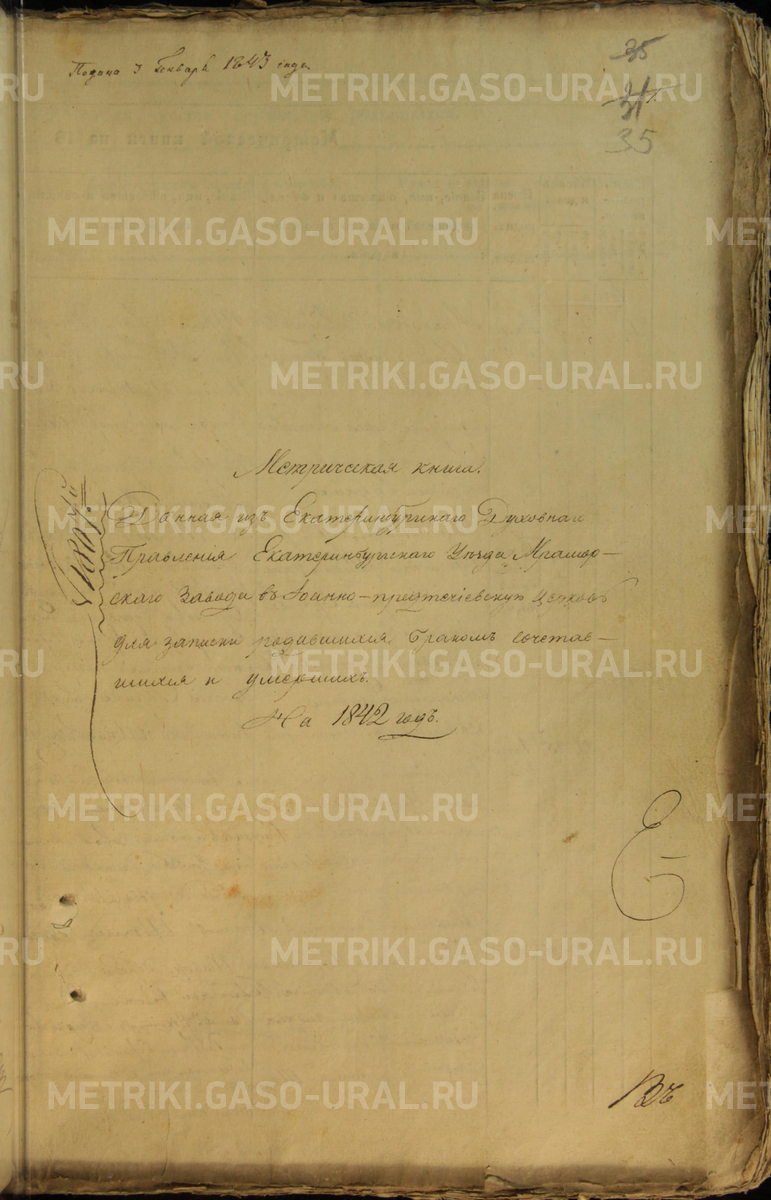 Подана 3 Генваря 1843 года.
35
31
35
Метрическая книга.
Данная изъ Екатеринбургскаго Духовнаго
Правления Екатеринбургскаго Уезда, Мрамор-
скаго Завода въ Иоанно-предтечіевскую Церковь
для записки родившихся, бракомъ сочетав-
шихся и умершихъ.
На 1842 годъ.
METRIKI.GASO-URAL.RU